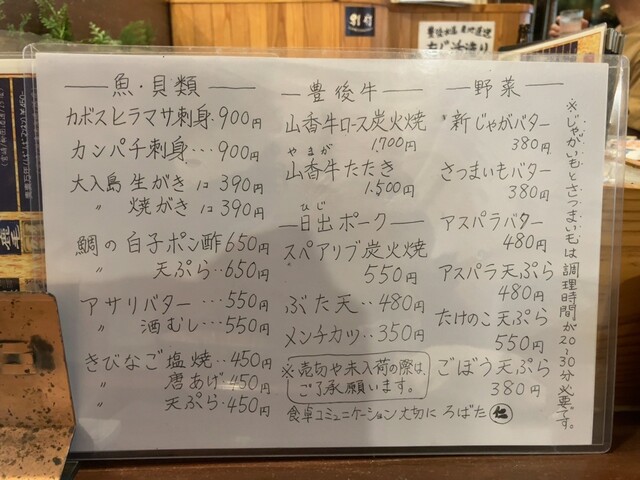 魚・貝類
カボスヒラマサ刺身・900円
カンパチ刺身・・・900円
大入島 生がき 1コ 390円
〃 焼がき 1コ 390円
鯛の白子ポン酢 650円
〃 天ぷら・・650円
アサリバター・・・550円
〃 酒むし・・・550円
きびなご塩焼・・450円
〃 唐あげ・450円
〃 天ぷら・450円
豊後牛
山香牛ロース炭火焼
1,700円
やまが
山香牛たたき
1,500円
ひじ
日出ポーク
スペアリブ炭火焼
550円
ぶた天・・480円
メンチカツ・・350円
※売切や未入荷の際は、
ご了承願います。
食卓コミュニケーション大切に ろばた 仁
野菜
※新じゃがバター
380円
さつまいもバター
380円
アスパラバター
480円
アスパラ天ぷら
480円
たけのこ天ぷら
550円
ごぼう天ぷら
380円
※じゃがいもとさつまいもは調理時間が20~30分必要です。